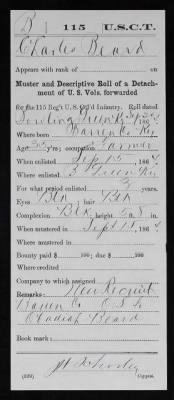 B | 115 | U.S.C.T.
Charles Beard
Appears with rank of on
Muster and Descriptive Roll of a Detachment
of U. S. Vols. forwarded
for the 115 Reg't U.S. Col'd Infantry. Roll dated
Bowling Green Ky Sep 20, 1864
Where born Barren Co. Ky.
Age 35 y'rs; occupation Farmer
When enlisted Sep 15, 1864
Where enlisted B Green Ky
For what period enlisted 3 years.
Eyes Blk; hair Blk
Complexion Blk; height 5 ft. 8 in.
When mustered in Sept 15, 1864
Where mustered in
Bounty paid $ 100; due $ 100
Where credited
Company to which assigned
Remarks: New Recruit
Barren Co
Obadiah Beard
Book mark:
(339) Copyist.